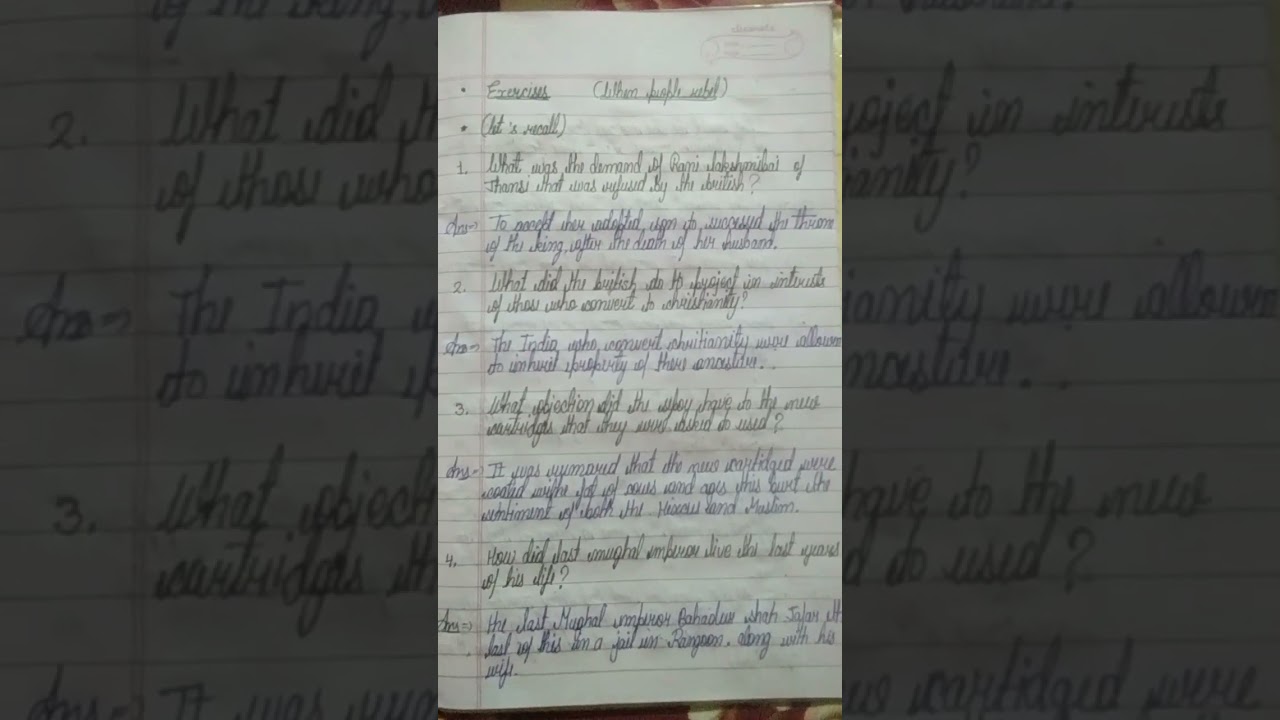 • Exercises (When people rebel)
• (let's recall)
1. What was the demand of Rani lakshmibai of
Jhansi that was refused by the british?
Ans⇒ To accept her adopted son to successed the throne
of the king, after the death of her husband.
2. What did the british do to project in interests
of those who convert to christianity?
Ans⇒ The India who convert chritianity were allown
to inherit property of there ancestors..
3. What objection did the sepoy have to the new
cartridges that they were asked to used?
Ans⇒ It was rumared that the new cartidged were
coated fat of cows and this hurt the
sentiment of both the and Muslim.
4. How did last mughal emperor live the last years
of his life?
Ans⇒ The last Mughal emperor Bahadur shah Jafar
last of this in a jail in Rangoon, along with his
wife.